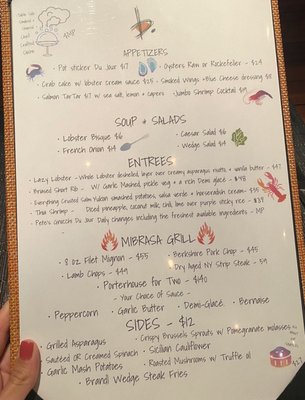 Table Side
Smoked +
Craft
Crafted
MP
APPETIZERS
· Pot sticker Du Jour $17 · Oysters Raw or Rockefeller - $24
· Crab cake w/ lobster cream sauce $25 · Smoked Wings + Blue Cheese dressing
· Salmon TarTar $17 w/ sea salt, lemon + capers · Jumbo Shrimp Cocktail
SOUP + SALADS
· Lobster Bisque $16 · Caesar Salad
· French Onion $14 · Wedge Salad
ENTREES
· Lazy Lobster - Whole Lobster deshelled, layer over creamy asparagus risotto + vanilla butter - $47
· Braised Short Rib - w/ Garlic Mashed, pickle veg + a rich Demi glace - $48
· Everything Crusted Salm Yukon smashed potatoes, salsa verde + horseradish cream -
· Thai Shrimp - Diced pineapple, coconut milk, chili, lime over purple sticky rice - $39
· Pete's Gnocchi Du Jour Daily changes including the freshest available ingredients - MP
MIBRASA GRILL
· 8 oz. Filet Mignon - $55 · Berkshire Pork Chop - $45
· Lamb Chops - $49 · Dry Aged NY Strip Steak - 59
Porterhouse for Two - $140
· Your Choice of Sauce -
· Peppercorn · Garlic Butter · Demi-Glacé · Bernaise
SIDES - $12
· Grilled Asparagus · Crispy Brussels Sprouts w/ Pomegranate molasses
· Sautéed OR Creamed Spinach · Sicilian Cauliflower
· Garlic Mash Potatoes · Roasted Mushrooms w/ Truffle oil
· Brand Wedge Steak Fries